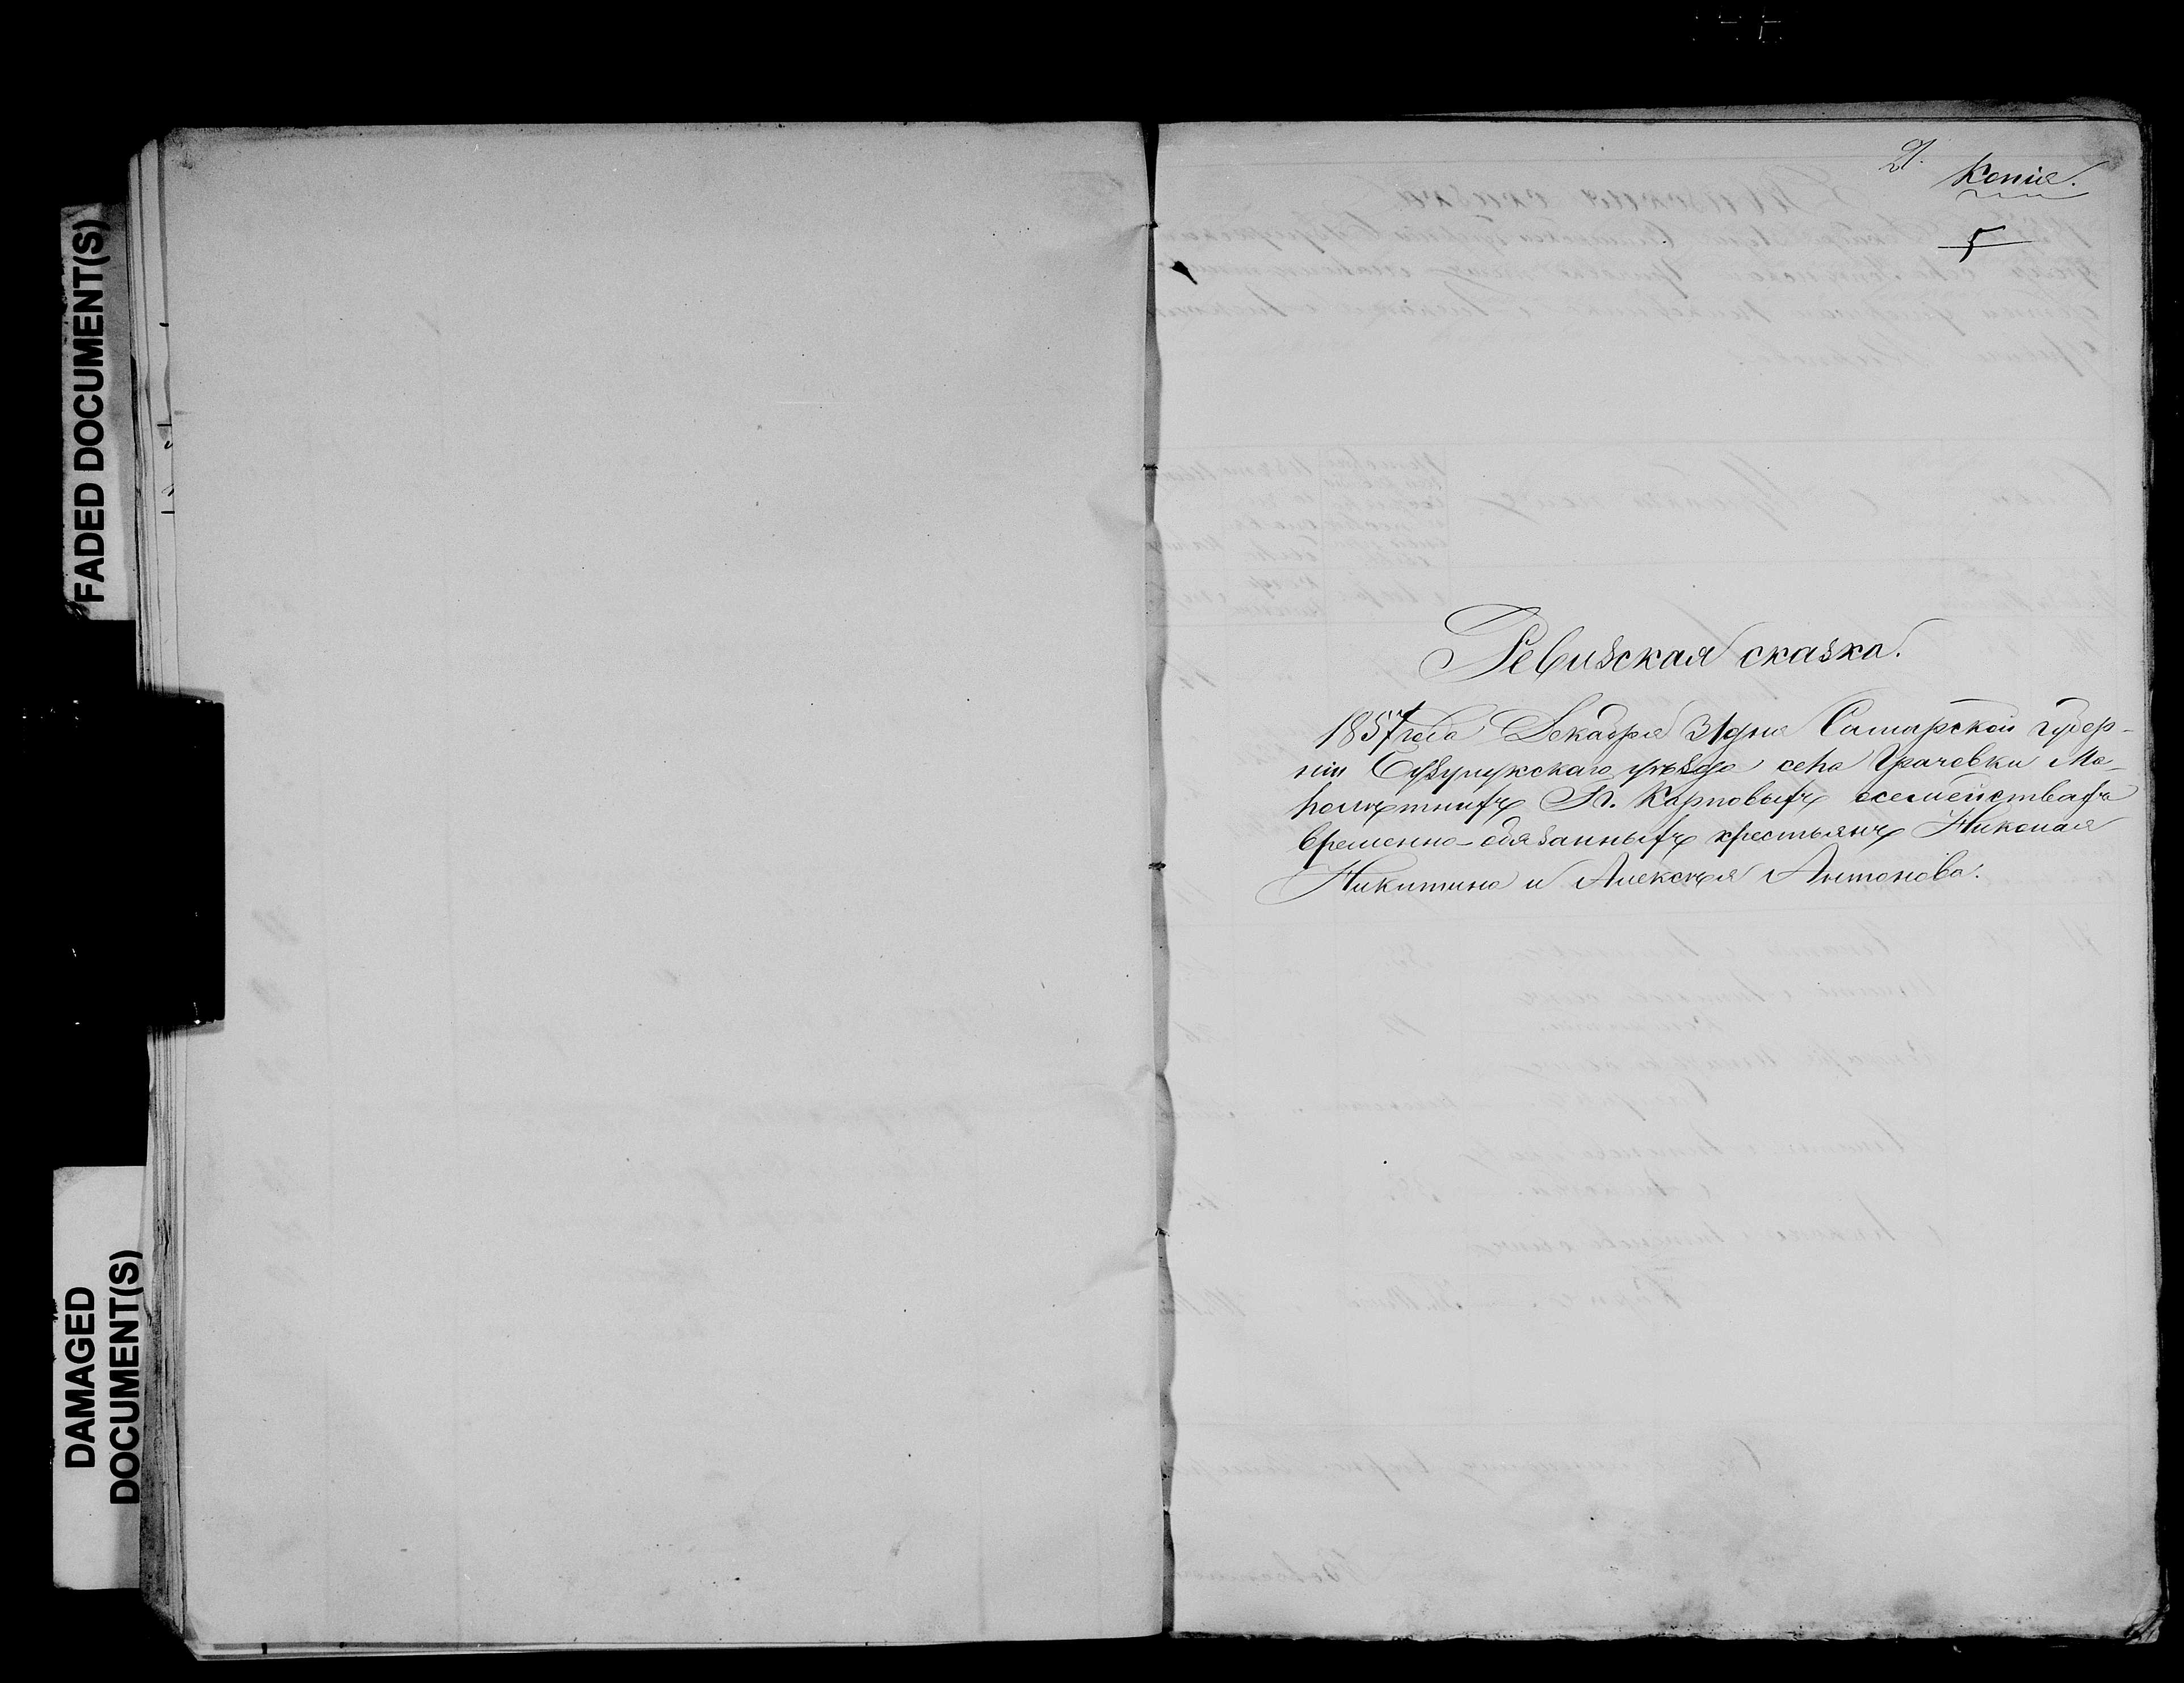 FADED DOCUMENT(S)
DAMAGED
DOCUMENT(S)
21.
Копія.
5
Ревизская сказка.
1857 года Декабря 31 дня Самарской губер-
ніи Бузулукскаго уѣзда села Грачевки Ма-
лолѣтнихъ Гг. Карповыхъ осемействахъ
временно-обязанныхъ крестьянъ Николая
Никитина и Алексѣя Антонова.